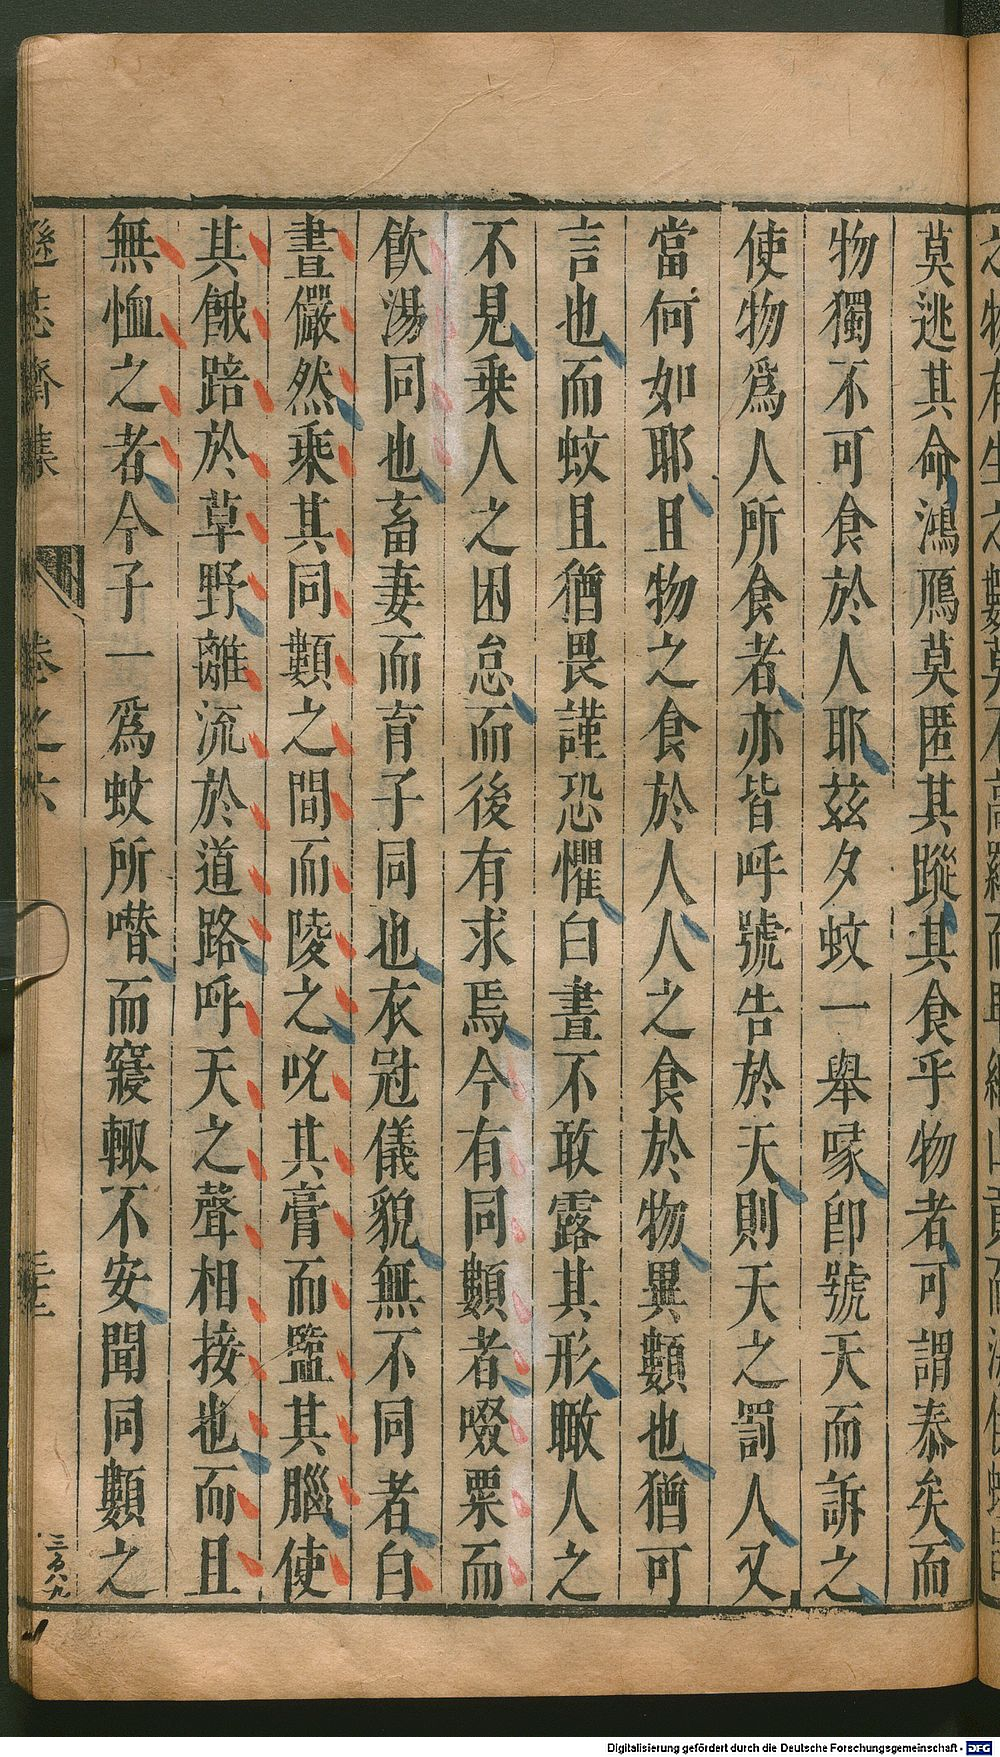 莫逃其命鴻鴈莫匿其蹤其食乎物者可謂泰矣而
物獨不可食於人耶兹夕蚊一舉喙卽號天而訴之
使物爲人所食者亦皆呼號告於天則天之罰人又
當何如耶且物之食於人人之食於物異類也猶可
言也而蚊且猶畏謹恐懼白晝不敢露其形瞰人之
不見乗人之困怠而後有求焉今有同類者啜粟而
飮湯同也畜妻而育子同也衣冠儀貌無不同者白
晝儼然乗其同類之間而陵之吮其膏而盬其腦使
其餓踣於草野離流於道路呼天之聲相接也而且
無恤之者今子一爲蚊所噆而寢輙不安聞同類之
遜志齋集 卷之六
三百八九
Digitalisierung gefördert durch die Deutsche Forschungsgemeinschaft - DFG